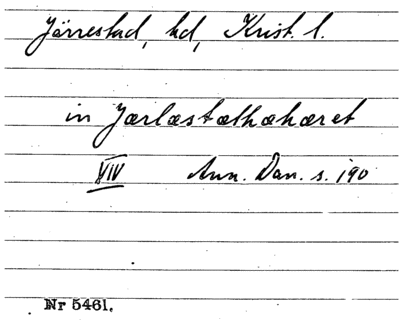 Järrestad, hd, Krist. l.
in Jærlæstathæhæret
XIV Ann. Dan. s. 190
Nr 5461.